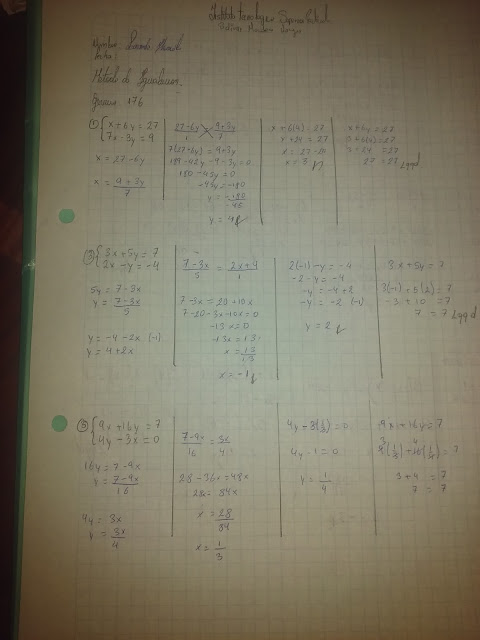 Instituto
Nombre:
fecha:
Metodo de Igualacion.
176
① { x + 6y = 27
7x - 3y = 9
x = 27 - 6y
x = 9 + 3y / 7
27 - 6y / 1 = 9 + 3y / 7
7(27 - 6y) = 9 + 3y
189 - 42y - 9 - 3y = 0
180 - 45y = 0
- 45y = -180
y = -180 / -45
y = 4
x + 6(4) = 27
x + 24 = 27
x = 27 - 24
x = 3
x + 6y = 27
3 + 6(4) = 27
3 + 24 = 27
27 = 27 Lqqd
② { 3x + 5y = 7
2x - y = -4
5y = 7 - 3x
y = 7 - 3x / 5
y = -4 - 2x (-1)
y = 4 + 2x
7 - 3x / 5 = 2x + 4 / 1
7 - 3x = 20 + 10x
7 - 20 - 3x - 10x = 0
-13 - x = 0
-13x = 13
x = 13 / 13
x = -1
2(-1) - y = -4
-2 - y = -4
-y = -4 + 2
-y = -2 (-1)
y = 2
3x + 5y = 7
3(-1) + 5(2) = 7
-3 + 10 = 7
7 = 7 Lqqd
③ { 9x + 16y = 7
4y - 3x = 0
16y = 7 - 9x
y = 7 - 9x / 16
4y = 3x
y = 3x / 4
7 - 9x / 16 = 3x / 4
28 - 36x = 48x
28 = 84x
x = 28 / 84
x = 1 / 3
4y - 3(1/3) = 0
4y - 1 = 0
y = 1 / 4
9x + 16y = 7
9(1/3) + 16(1/4) = 7
3 + 4 = 7
7 = 7